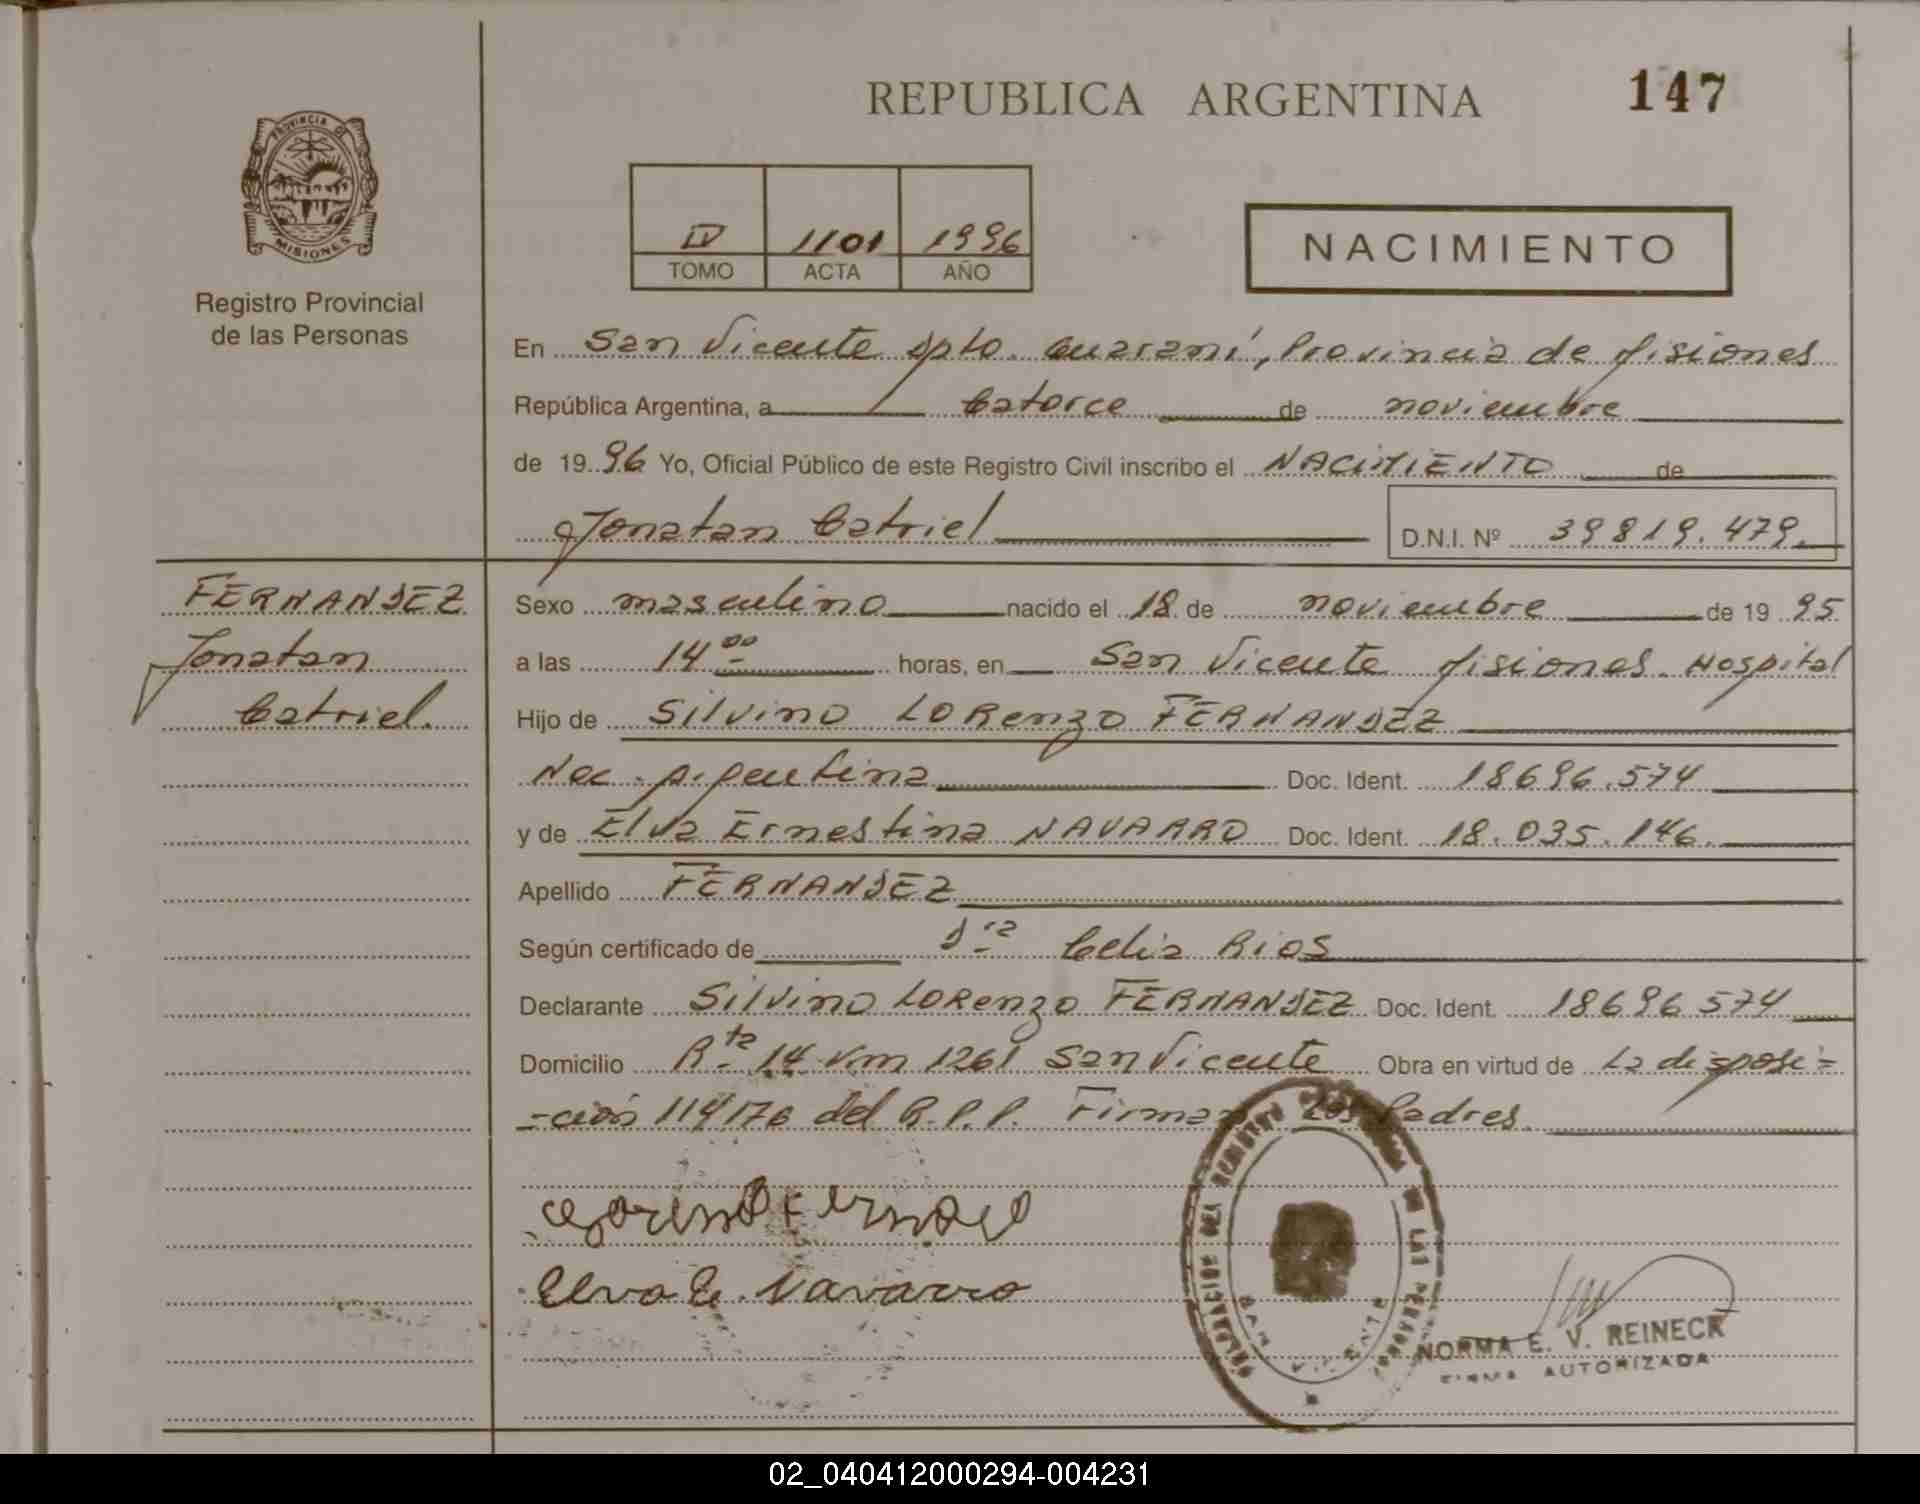 REPUBLICA ARGENTINA
147
PROVINCIA DE
MISIONES
Registro Provincial
de las Personas
IV 1101 1996
TOMO ACTA AÑO
NACIMIENTO
En San Vicente Dpto. Guaraní, Provincia de Misiones
República Argentina, a Catorce de noviembre
de 1996 Yo, Oficial Público de este Registro Civil inscribo el NACIMIENTO de
Jonatan Catriel D.N.I. Nº 39819.479.
FERNANDEZ
Jonatan
Catriel.
Sexo masculino nacido el 18 de noviembre de 1995
a las 14 00 horas, en San Vicente Misiones. Hospital
Hijo de Silvino Lorenzo FERNANDEZ
Nac. Argentina Doc. Ident. 18696.574
y de Elva Ernestina NAVARRO Doc. Ident. 18.035.146.
Apellido FERNANDEZ
Según certificado de Dra Celia Rios
Declarante Silvino Lorenzo FERNANDEZ Doc. Ident. 18696574
Domicilio Rta 14 Km 1261 San Vicente Obra en virtud de La disposi=
=ción 114/76 del R.P.P. Firman Los Padres.
Elva E. Navarro
NORMA E. V. REINECK
FIRMA AUTORIZADA
02_040412000294-004231